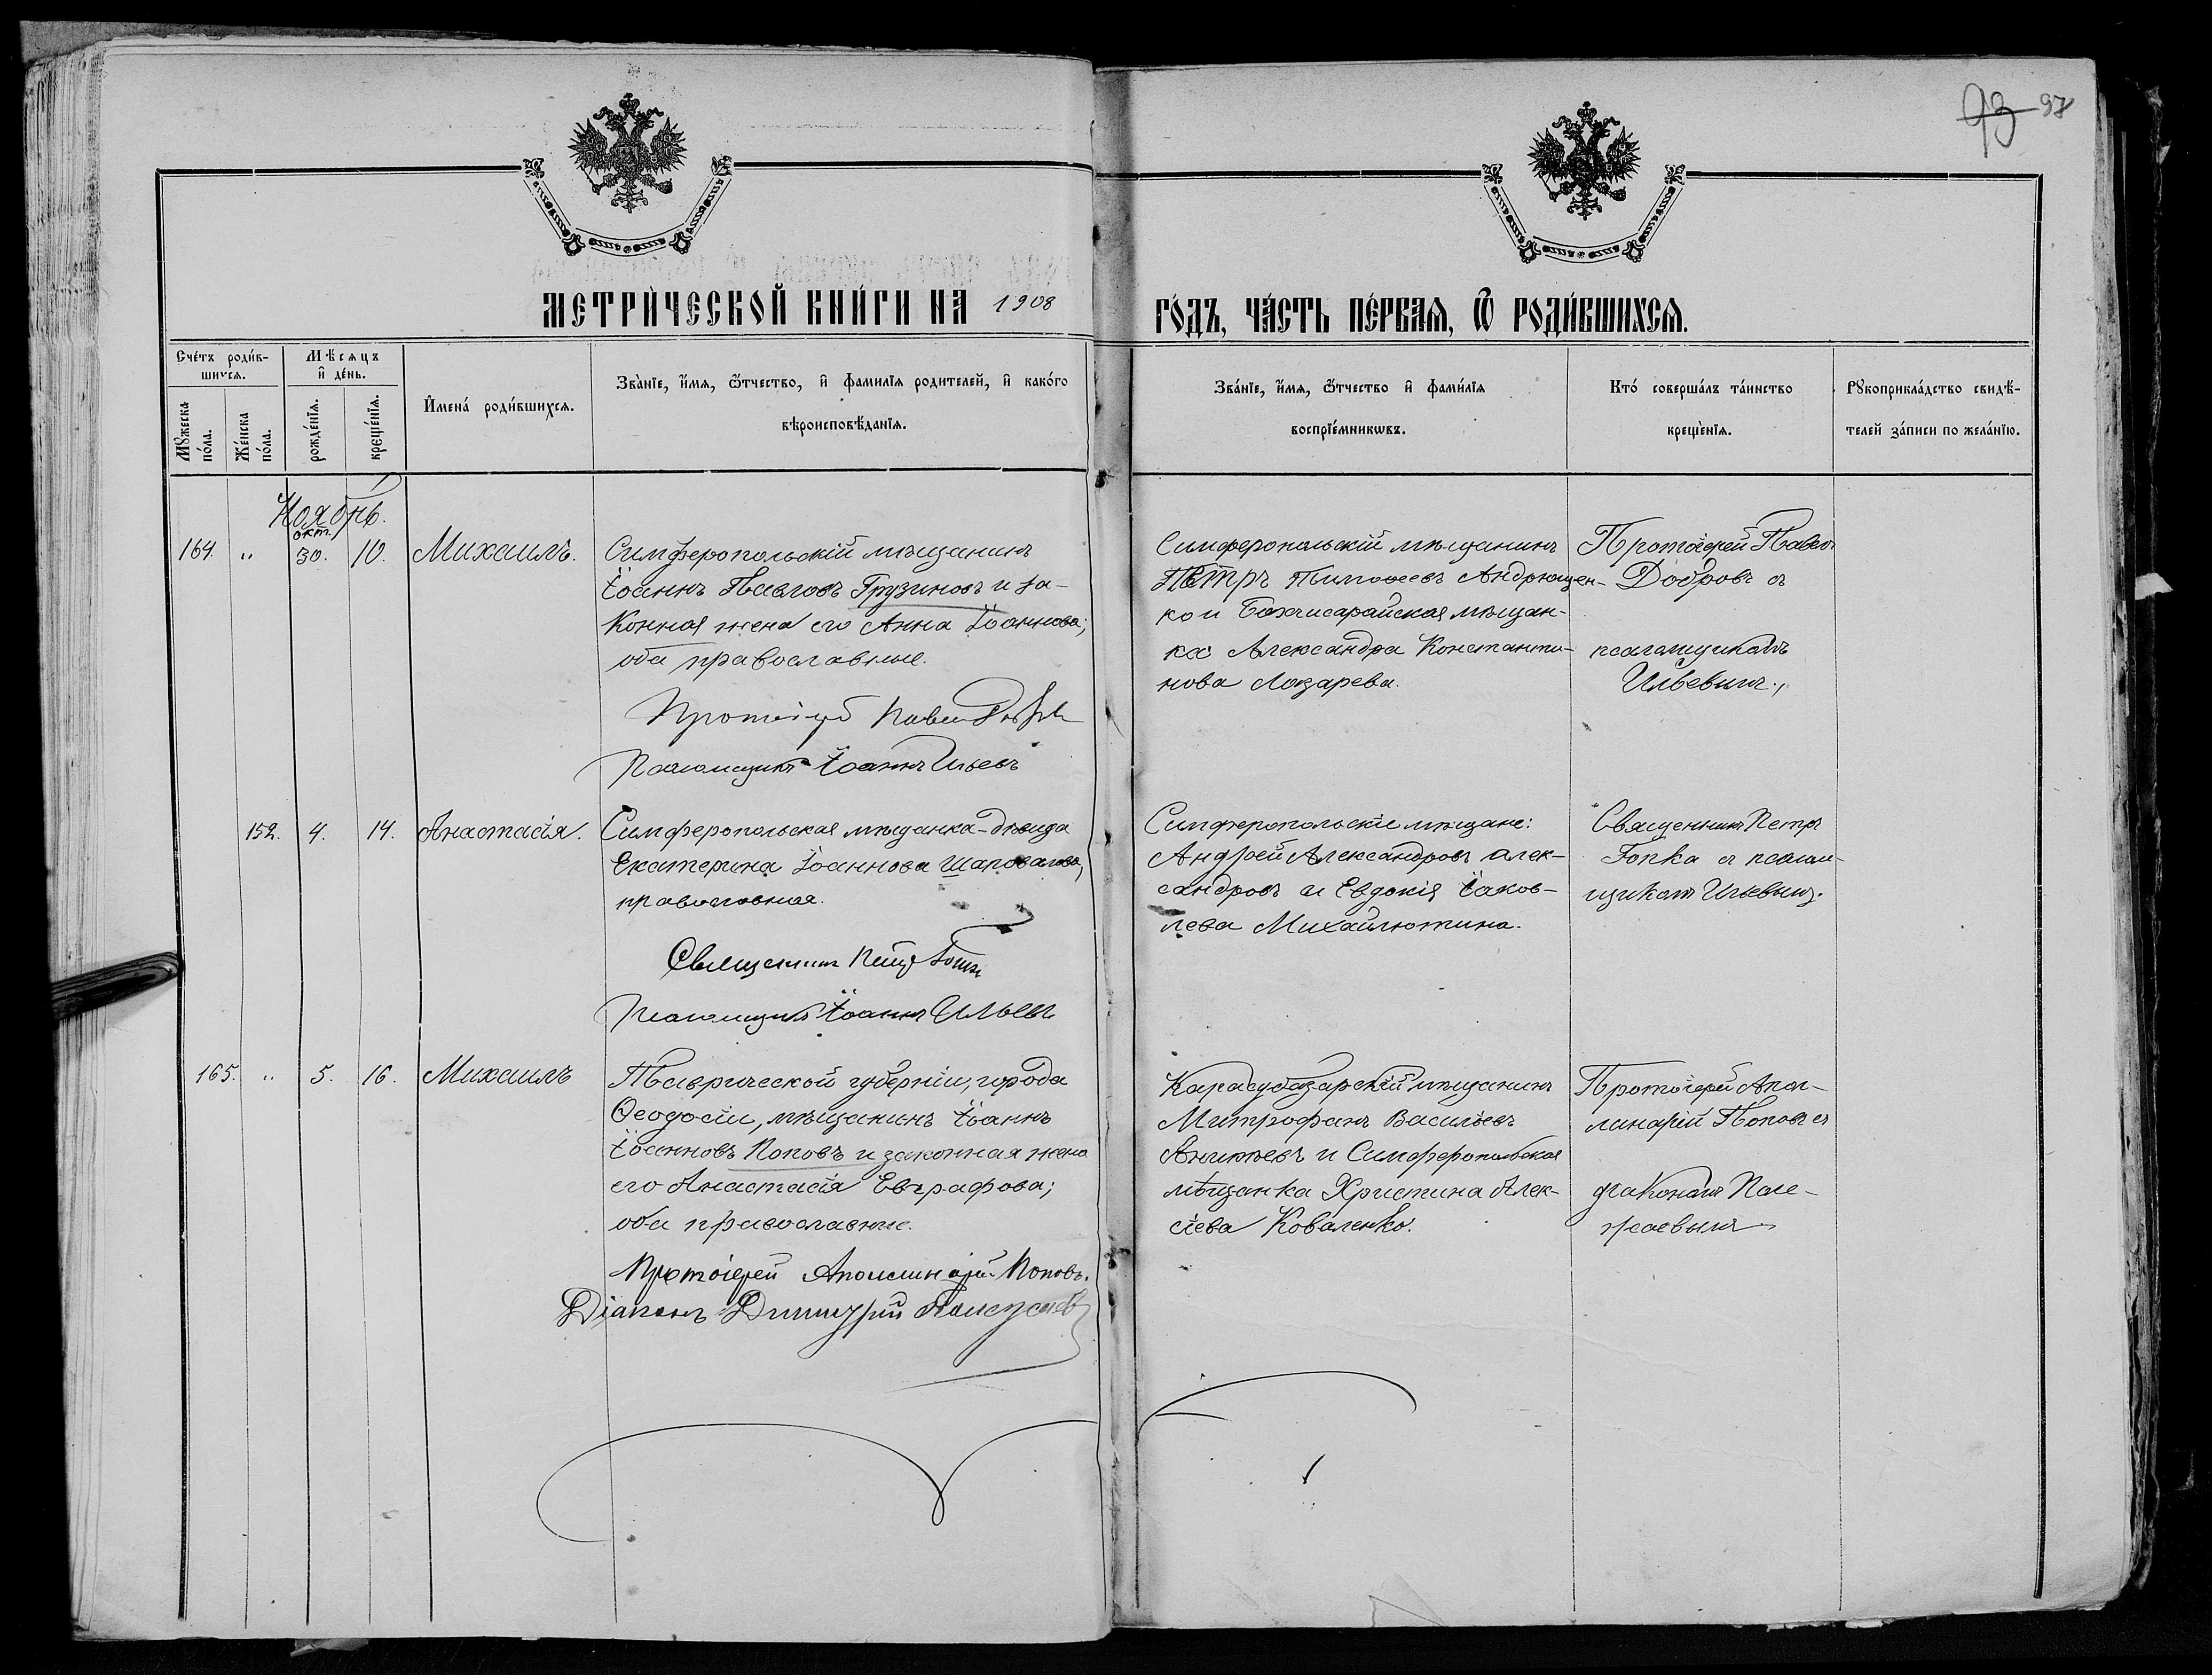 93 97
МЕТРИ́ЧЕСКОЙ КНИ́ГИ НА 1908 ГО́ДЪ, ЧА́СТЬ ПЕ́РВАѦ, Ѽ РОДИ́ВШИХСѦ.
Сче́тъ роди́в-
шихсѧ.
Мꙋ́жеска по́ла.
Же́нска по́ла.
Мѣ́сѧцъ
и҆ де́нь.
рожде́нїѧ.
креще́нїѧ.
И҆мена̀ роди́вшихсѧ.
Зва́нїе, и҆́мѧ, ѻ҆́тчество, и҆ фами́лїѧ роди́телей, и҆ како́го
вѣроисповѣ́данїѧ.
Зва́нїе, и҆́мѧ, ѻ҆́тчество и҆ фами́лїѧ
воспрїе́мникѡвъ.
Кто́ соверша́лъ та́инство
креще́нїѧ.
Рꙋкоприкла́дство свидѣ́-
телей за́писи по жела́нїю.
Ноябрь.
164. " окт. 30. 10. Михаилъ.
Симферопольскій мѣщанинъ
Іоаннъ Павловъ Грузиновъ и за-
конная жена его Анна Іоаннова;
оба православные.
Протоіерей Павелъ Добровъ
Псаломщикъ Іоаннъ Ильевъ
Симферопольскій мѣщанинъ
Петръ Тимоѳеевъ Андрющен-
ко и Бахчисарайская мѣщан-
ка Александра Константи-
нова Лазарева.
Протоіерей Павелъ
Добровъ съ
псаломщикомъ
Ильевымъ.
152. 4. 14. Анастасія.
Симферопольская мѣщанка-дѣвица
Екатерина Іоаннова Шаповалова,
православная.
Священникъ Петръ
Псаломщикъ Іоаннъ Ильевъ
Симферопольскіе мѣщане:
Андрей Александровъ Алек-
сандровъ и Евдокія Іаков-
лева Михайлютина.
Священникъ Петръ
съ псалом-
щикомъ Ильевымъ.
165. " 5. 16. Михаилъ
Таврической губерніи, города
Ѳеодосіи, мѣщанинъ Іоаннъ
Іоанновъ Поповъ и законная жена
его Анастасія Евграфова;
оба православные.
Протоіерей Аполлинарій Поповъ.
Діаконъ Димитрій Полежаевъ
Карасубазарскій мѣщанинъ
Митрофанъ Васильевъ
Аникѣевъ и Симферопольская
мѣщанка Христина Алек-
сіева Коваленко.
Протоіерей Апол-
линарій Поповъ съ
діакономъ Поле-
жаевымъ